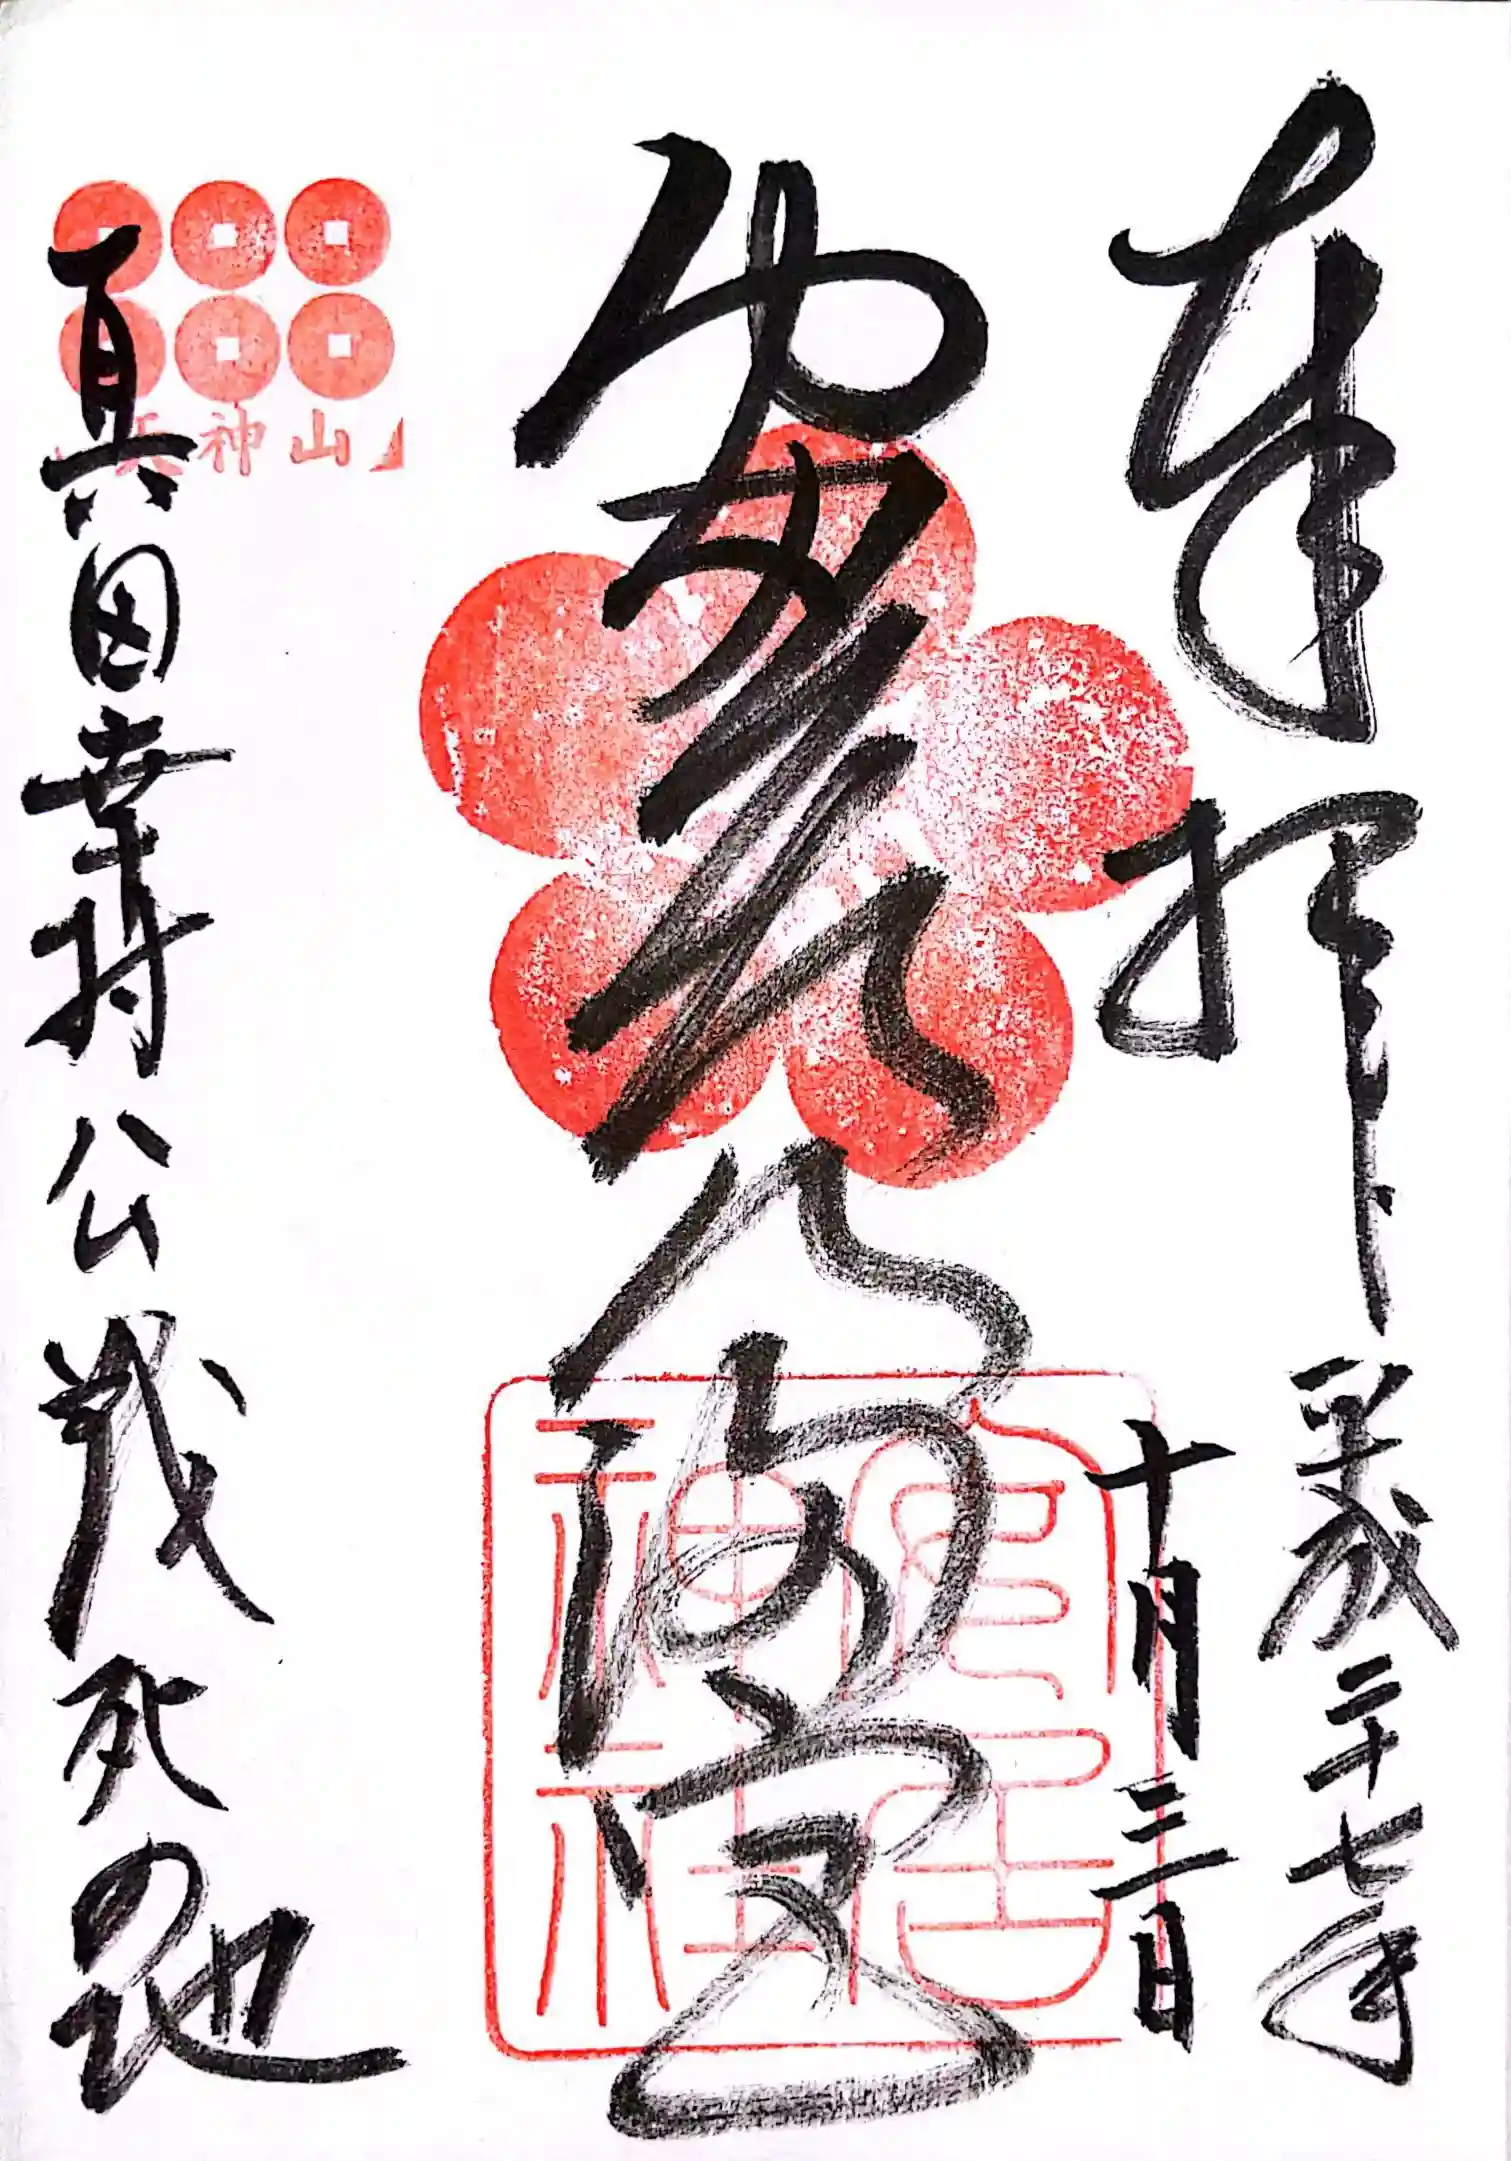 奉拝
平成二十七年
十月三日
安居天満宮
安居神社
真田幸村公戦死の地